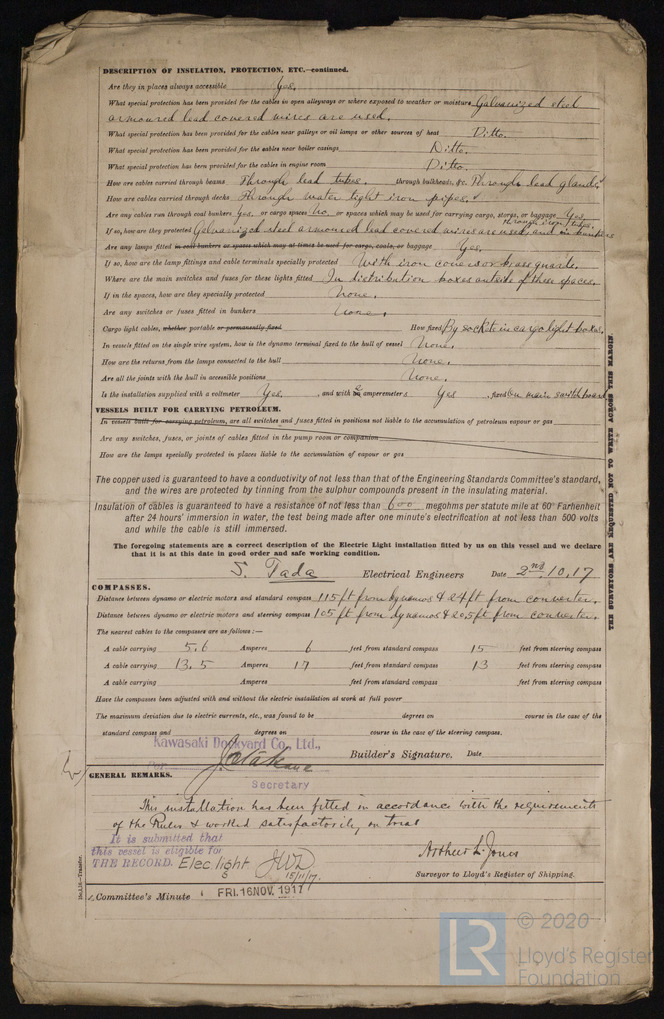 DESCRIPTION OF INSULATION, PROTECTION, ETC.—continued.
Are they in places always accessible Yes.
What special protection has been provided for the cables in open alleyways or where exposed to weather or moisture Galvanized steel
armoured lead covered wires are used.
What special protection has been provided for the cables near galleys or oil lamps or other sources of heat Ditto.
What special protection has been provided for the cables near boiler casings Ditto.
What special protection has been provided for the cables in engine room Ditto.
How are cables carried through beams Through lead tubes. through bulkheads, &c. Through lead glands
How are cables carried through decks Through water tight iron pipes.
Are any cables run through coal bunkers Yes, or cargo spaces No. or spaces which may be used for carrying cargo, stores, or baggage Yes.
through iron tubes.
If so, how are they protected Galvanized steel armoured lead covered wires are used, and in bunkers
Are any lamps fitted in coal bunkers or spaces which may at times be used for cargo, coals, or baggage Yes.
If so, how are the lamp fittings and cable terminals specially protected With iron covers or brass guards.
Where are the main switches and fuses for these lights fitted In distribution boxes outside of these spaces.
If in the spaces, how are they specially protected None.
Are any switches or fuses fitted in bunkers None.
Cargo light cables, whether portable or permanently fixed How fixed By sockets in cargo light boxes.
In vessels fitted on the single wire system, how is the dynamo terminal fixed to the hull of vessel None.
How are the returns from the lamps connected to the hull None.
Are all the joints with the hull in accessible positions None.
Is the installation supplied with a voltmeter Yes. , and with 2 amperemeters Yes , fixed on main switch board
VESSELS BUILT FOR CARRYING PETROLEUM.
In vessels built for carrying petroleum, are all switches and fuses fitted in positions not liable to the accumulation of petroleum vapour or gas
Are any switches, fuses, or joints of cables fitted in the pump room or companion
How are the lamps specially protected in places liable to the accumulation of vapour or gas
The copper used is guaranteed to have a conductivity of not less than that of the Engineering Standards Committee's standard,
and the wires are protected by tinning from the sulphur compounds present in the insulating material.
Insulation of cables is guaranteed to have a resistance of not less than 600 megohms per statute mile at 60° Farhenheit
after 24 hours' immersion in water, the test being made after one minute's electrification at not less than 500 volts
and while the cable is still immersed.
The foregoing statements are a correct description of the Electric Light installation fitted by us on this vessel and we declare
that it is at this date in good order and safe working condition.
S. Tada Electrical Engineers Date 2nd. 10. 17
COMPASSES.
Distance between dynamo or electric motors and standard compass 115 ft from dynamos & 24 ft from converter.
Distance between dynamo or electric motors and steering compass 105 ft from dynamos & 20.5 ft from converter.
The nearest cables to the compasses are as follows:—
A cable carrying 5.6 Amperes 6 feet from standard compass 15 feet from steering compass
A cable carrying 13.5 Amperes 17 feet from standard compass 13 feet from steering compass
A cable carrying Amperes feet from standard compass feet from steering compass
Have the compasses been adjusted with and without the electric installation at work at full power
The maximum deviation due to electric currents, etc., was found to be degrees on course in the case of the
standard compass and degrees on course in the case of the steering compass.
Kawasaki Dockyard Co., Ltd.,
For Builder's Signature. Date
Secretary
GENERAL REMARKS.
This installation has been fitted in accordance with the requirements
of the Rules & worked satisfactorily on trial
It is submitted that
this vessel is eligible for
THE RECORD. Elec. light JWD 15/11/17.
Arthur L. Jones
Surveyor to Lloyd's Register of Shipping.
Committee's Minute FRI. 16 NOV. 1917
THE SURVEYORS ARE REQUESTED NOT TO WRITE ACROSS THIS MARGIN
LR
© 2020
Lloyd's Register
Foundation